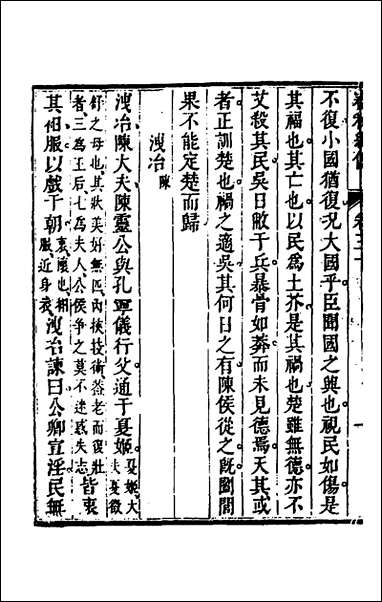 不復小國猶復況大國乎臣聞國之興也視民如傷是
其福也其亡也以民為土芥是其禍也楚雖無德亦不
艾殺其民吳日敝于兵暴骨如莽而未見德焉天其或
者正訓楚也禍之適吳其何日之有陳侯從之旣闔閭
果不能定楚而歸
洩冶陳
洩冶陳大夫陳靈公與孔寧儀行父通于夏姬夏姬大夫夏徵
舒之母也其狀美好無匹內挾技術蓋老而復壯
者三為王后七為夫人公侯爭之莫不迷惑失志皆衷
其衵服以戲于朝衷懷也衵服近身衣洩冶諫曰公卿宣淫民無